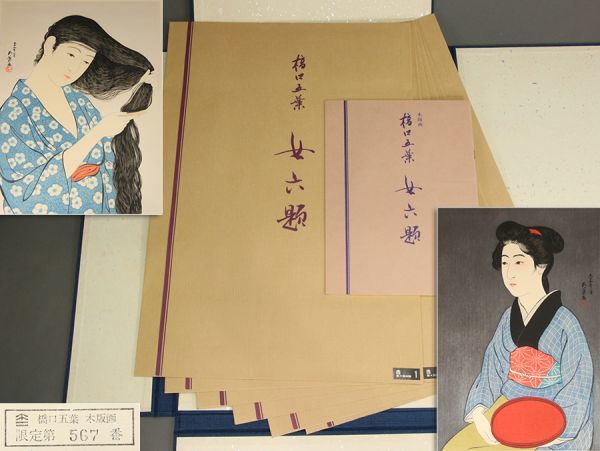 橋口五葉
女六題
木版画
橋口五葉
女六題
1
橋口五葉 木版画
限定第 567 番